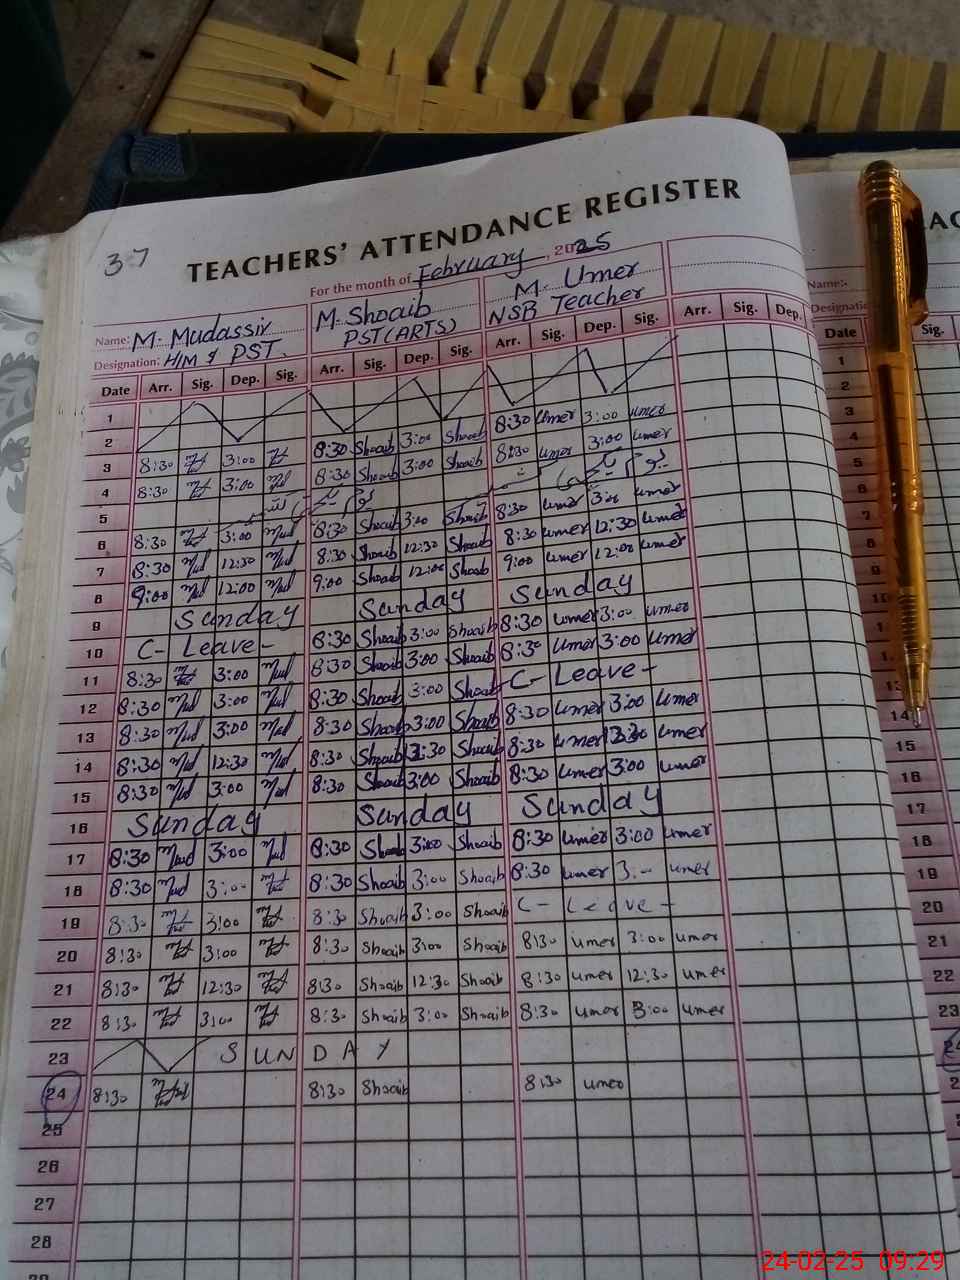 37
TEACHERS' ATTENDANCE REGISTER
For the month of February, 2025
Name: M. Mudassir M. Shoaib M. Umer
Designation: H/M & PST. PST (ARTS) NSB Teacher
Date Arr. Sig. Dep. Sig. Arr. Sig. Dep. Sig. Arr. Sig. Dep. Sig. Arr. Sig. Dep.
1
2
3 8:30 3:00 8:30 Shoaib 3:00 Shoaib 8:30 umer 3:00 umer
4 8:30 3:00 8:30 Shoaib 3:00 Shoaib 8:30 umer 3:00 umer
5
6 8:30 3:00 Mud 8:30 Shoaib 3:00 Shoaib 8:30 umer 3:00 umer
7 8:30 Mud 12:30 Mud 8:30 Shoaib 12:30 Shoaib 8:30 umer 12:30 umer
8 9:00 Mud 12:00 Mud 9:00 Shoaib 12:00 Shoaib 9:00 umer 12:00 umer
9 Sunday Sunday Sunday
10 C- Leave- 8:30 Shoaib 3:00 Shoaib 8:30 umer 3:00 umer
11 8:30 3:00 Mud 8:30 Shoaib 3:00 Shoaib 8:30 umer 3:00 umer
12 8:30 Mud 3:00 Mud 8:30 Shoaib 3:00 Shoaib C- Leave-
13 8:30 Mud 3:00 Mud 8:30 Shoaib 3:00 Shoaib 8:30 umer 3:00 umer
14 8:30 Mud 12:30 Mud 8:30 Shoaib 12:30 Shoaib 8:30 umer 12:30 umer
15 8:30 Mud 3:00 Mud 8:30 Shoaib 3:00 Shoaib 8:30 umer 3:00 umer
16 Sunday Sunday Sunday
17 8:30 Mud 3:00 Mud 8:30 Shoaib 3:00 Shoaib 8:30 umer 3:00 umer
18 8:30 Mud 3:00 8:30 Shoaib 3:00 Shoaib 8:30 umer 3:00 umer
19 8:30 3:00 8:30 Shoaib 3:00 Shoaib C- Leave-
20 8:30 3:00 8:30 Shoaib 3:00 Shoaib 8:30 umer 3:00 umer
21 8:30 12:30 8:30 Shoaib 12:30 Shoaib 8:30 umer 12:30 umer
22 8:30 3:00 8:30 Shoaib 3:00 Shoaib 8:30 umer 3:00 umer
23 SUNDAY
24 8:30 8:30 Shoaib 8:30 umer
25
26
27
28
Name:-
Date Sig.
1
2
3
4
5
7
8
9
10
14
15
16
17
18
19
20
21
22
23
24-02-25 09:29